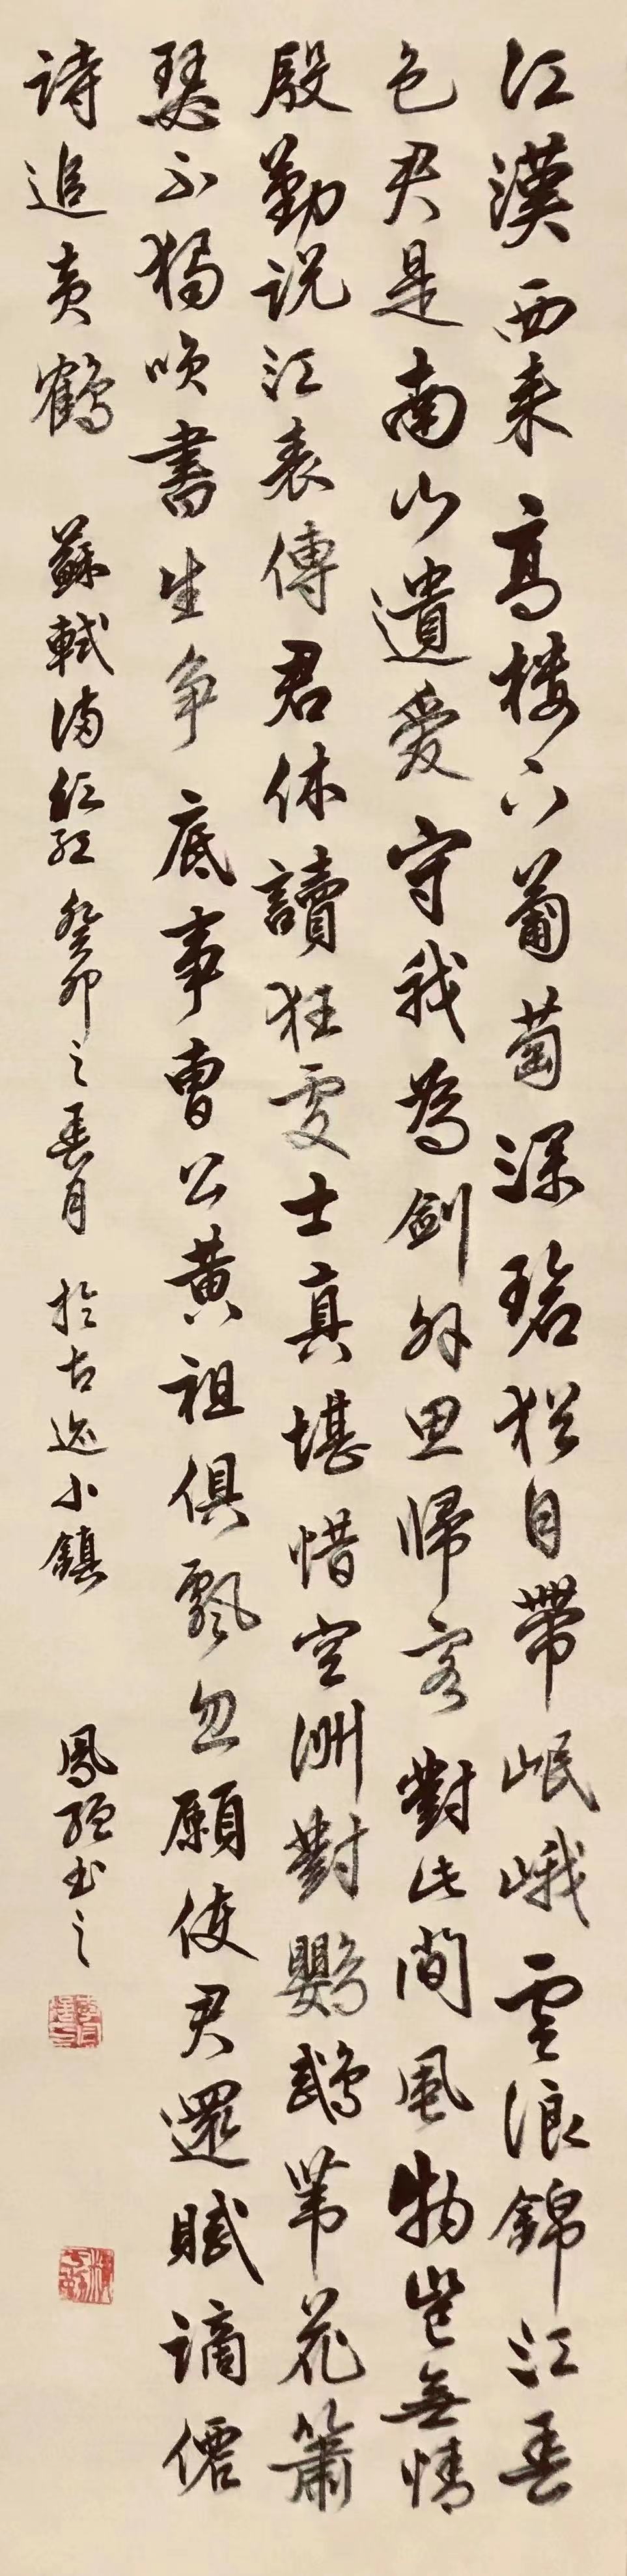 江漢西来高楼下葡萄深碧猶自帶岷峨雲浪錦江春
色君是南山遺愛守我為劍外思歸客對此間風物豈無情
殷勤說江表傳君休讀狂處士真堪惜空洲對鸚鵡葦花簫
瑟不獨笑書生争底事曹公黄祖俱飄忽願使君還賦謫仙
詩追黄鶴 蘇軾满江红 癸卯之春月 於古逸小鎮 鳳強书之